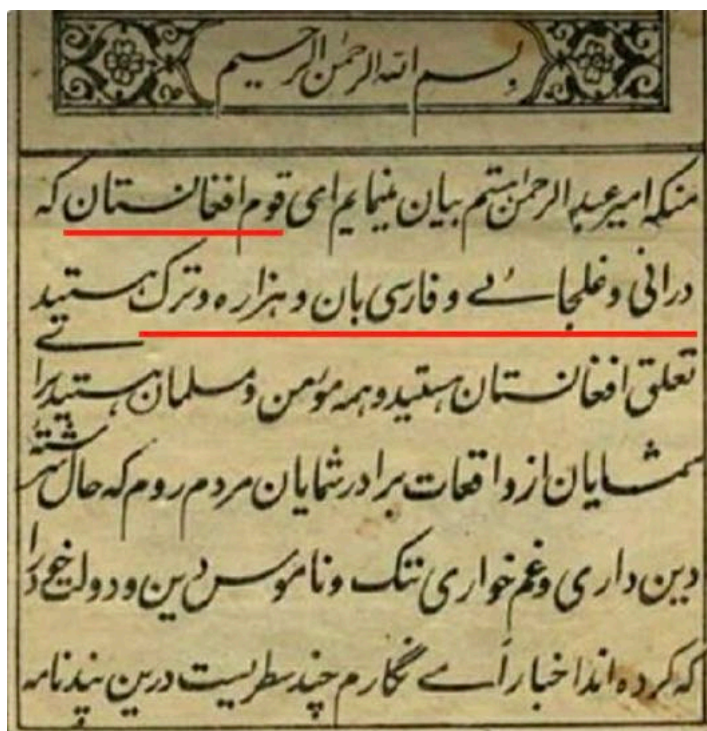 بسم الله الرحمن الرحیم
منکه امیر عبدالرحمن هستم بیان مینمایم ای قوم افغانستان که
درانی و غلجائے و فارسی بان و هزاره و ترک هستید
تعلق افغانستان هستید و همه مؤمن و مسلمان هستید برائے
شمایان از واقعات برادر شمایان مردم روم که حال سررشتهٔ
دین داری و غم خواری ننگ و ناموس دین و دولت خود را
که کرده اند اخبار اً مے نگارم چند سطریست درین پندنامه